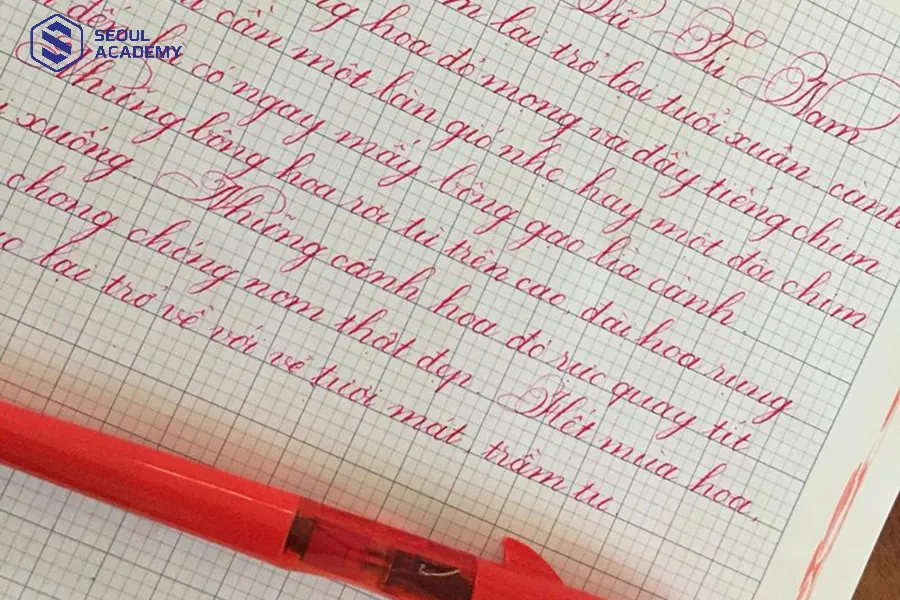 SEOUL
ACADEMY
Vũ Tú Nam
lại trở lại tuổi xuân, cành
hoa đỏ mọng và đầy tiếng chim
cần một làn gió nhẹ hay một đôi chim
có ngay mấy bông gạo lìa cành.
Những bông hoa rơi từ trên cao, đài hoa
xuống. Những cánh hoa đỏ rực quay tít
chong chóng nom thật đẹp. Hết mùa hoa,
lại trở về với vẻ tươi mát, trầm tư